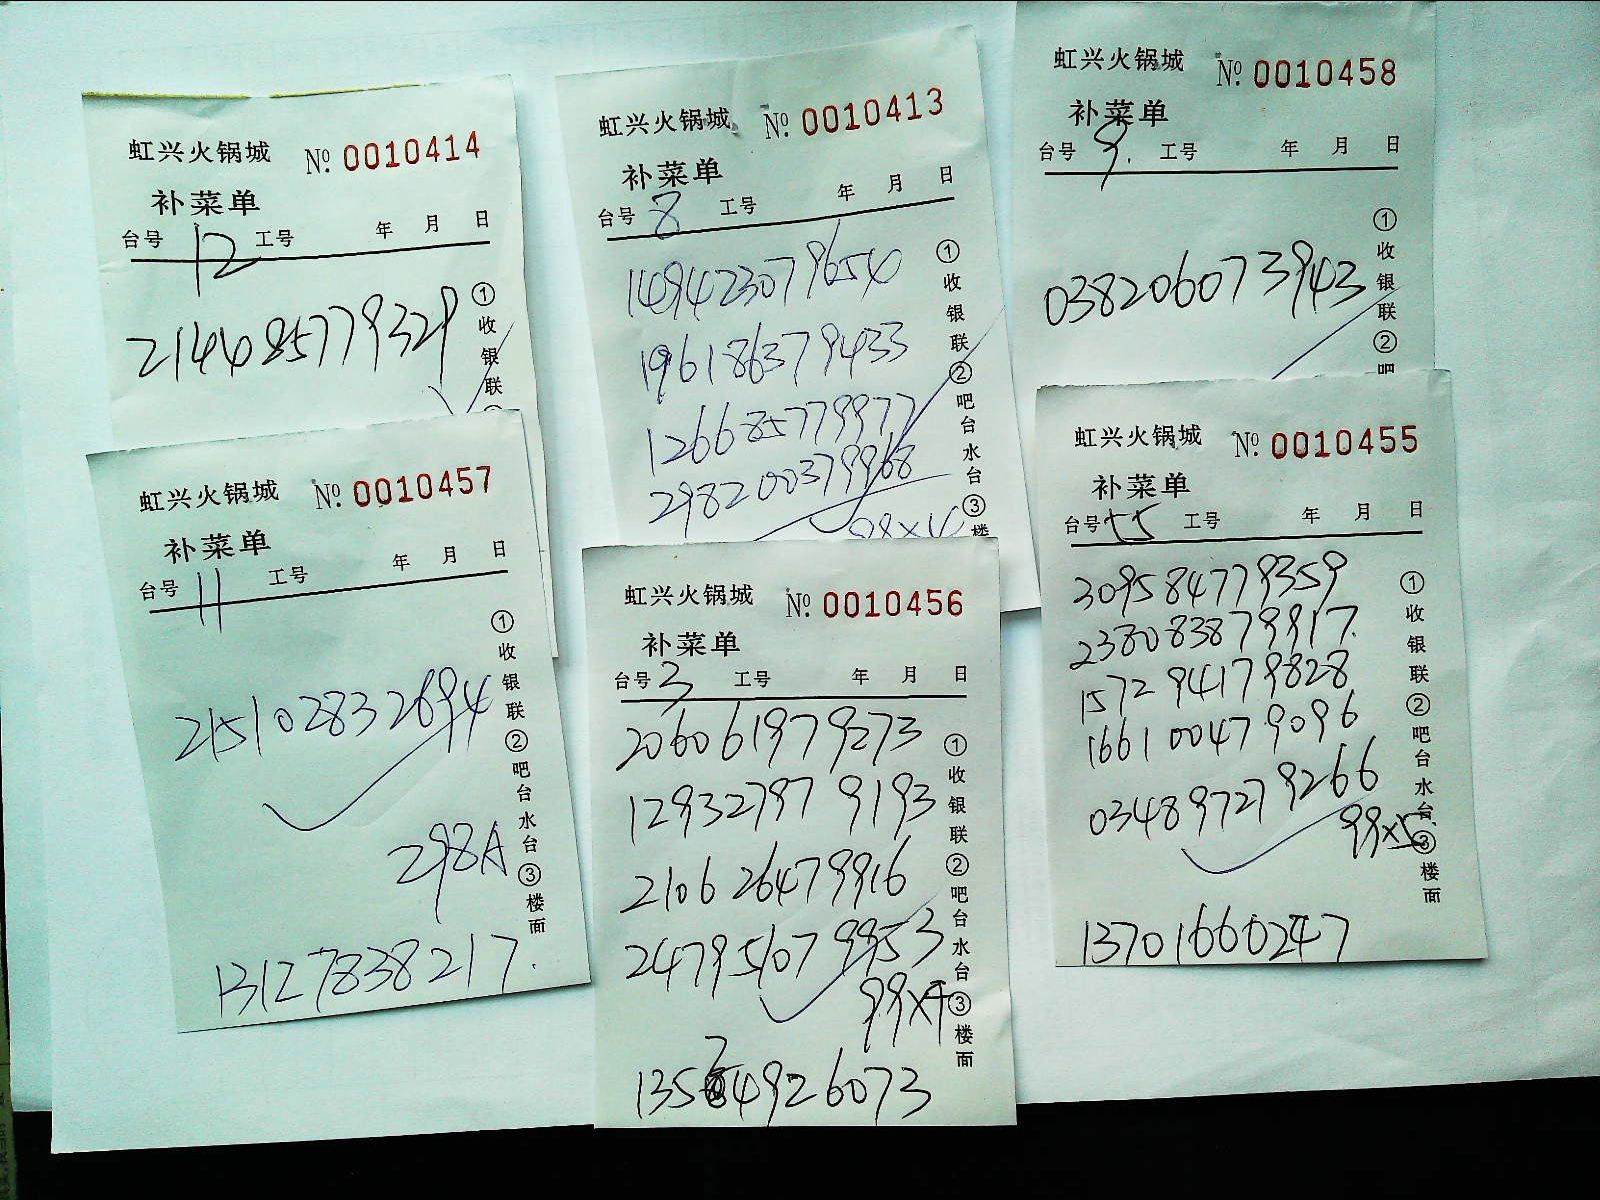 虹兴火锅城 №. 0010414
补菜单
台号 12 工号 年 月 日
2144085779329
①收银联
虹兴火锅城 №. 0010413
补菜单
台号 8 工号 年 月 日
1494230779654
1961863794433
126685779977
2982003799968
①收银联②吧台水台③楼
虹兴火锅城 №. 0010458
补菜单
台号 9. 工号 年 月 日
0382060739943
①收银联②吧
虹兴火锅城 №. 0010457
补菜单
台号 11 工号 年 月 日
2151028332694
298A
13127838217.
①收银联②吧台水台③楼面
虹兴火锅城 №. 0010456
补菜单
台号 3 工号 年 月 日
2060619799273
1293279799193
2106264799916
2479510799953
99×4
13564926073
①收银联②吧台水台③楼面
虹兴火锅城 №. 0010455
补菜单
台号 55 工号 年 月 日
3095847799359
2380838799917.
1572941799828
1661004799096
0348972799266
99×5
13701660247
①收银联②吧台水台③楼面